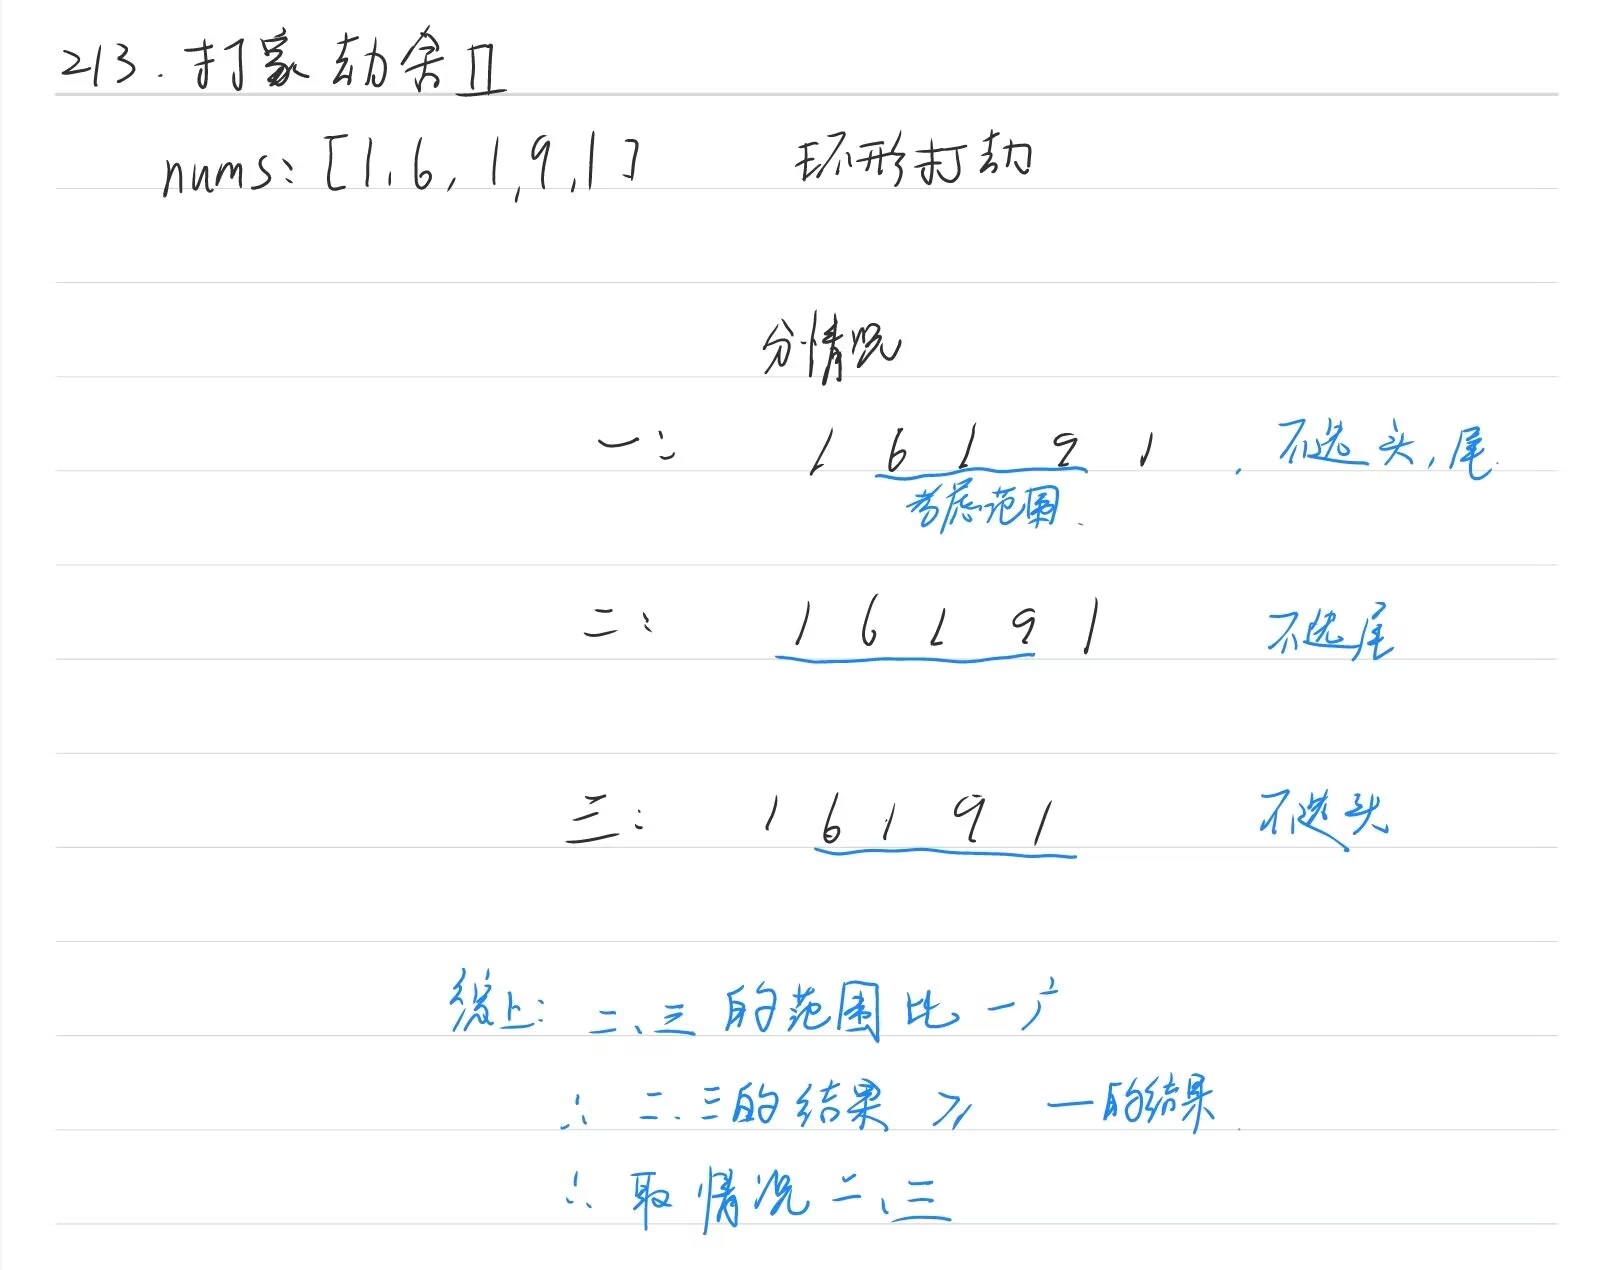 213. 打家劫舍II
nums: [1,6,1,9,1] 环形打劫
分情况
一: 1 6 1 9 1 . 不选头,尾.
考虑范围.
二: 1 6 1 9 1 不选尾
三: 1 6 1 9 1 不选头
综上: 二、三的范围比一广
∴ 二.三的结果 ≥ 一的结果.
∴ 取情况二、三